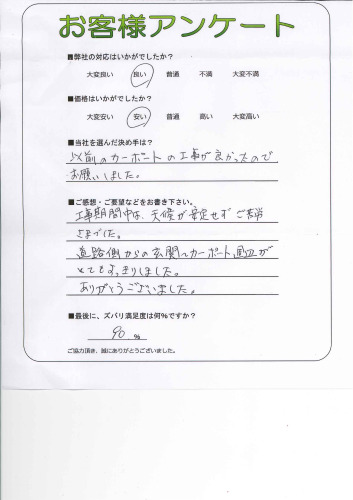 お客様アンケート
■弊社の対応はいかがでしたか?
大変良い 良い 普通 不満 大変不満
■価格はいかがでしたか?
大変安い 安い 普通 高い 大変高い
■当社を選んだ決め手は?
以前のカーポートの工事が良かったので
お願いしました。
■ご感想・ご要望などをお書き下さい。
工事期間中は、天候が安定せずご苦労
さまでした。
道路側からの玄関〜カーポート周辺が
とてもすっきりしました。
ありがとうございました。
■最後に、ズバリ満足度は何%ですか?
90 %
ご協力頂き、誠にありがとうございました。